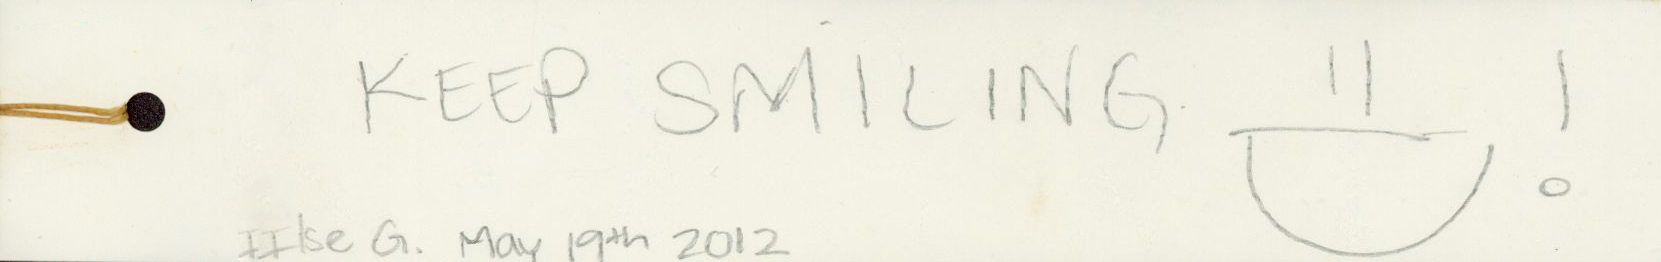 KEEP SMILING !
IIlse G. May 19th 2012